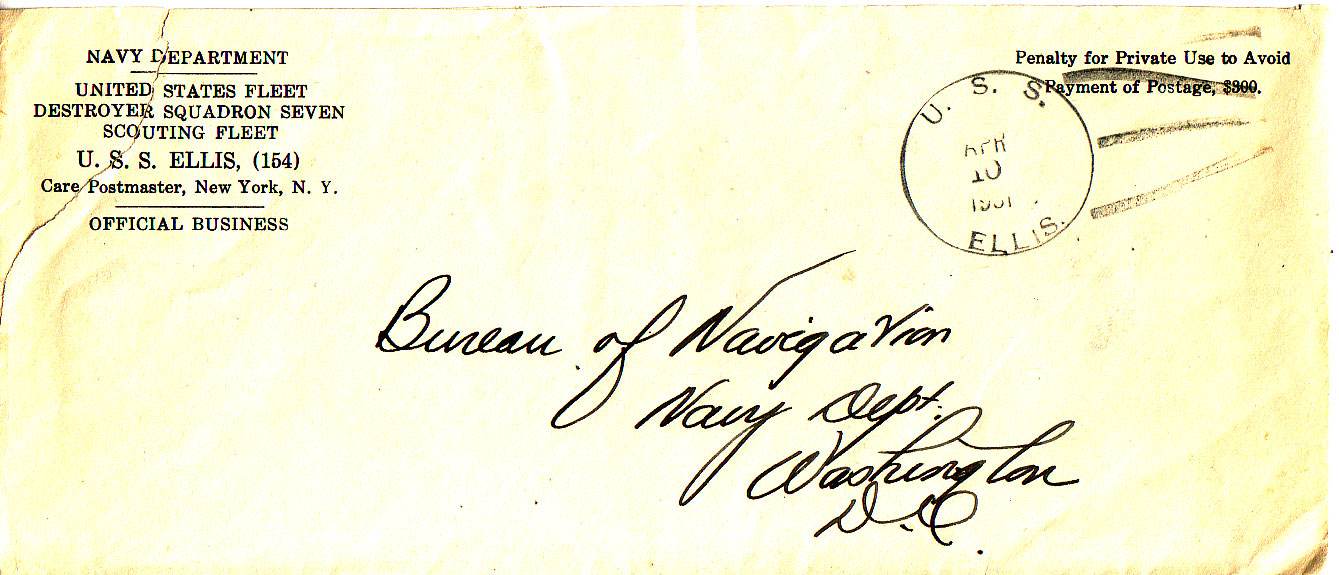 NAVY DEPARTMENT
UNITED STATES FLEET
DESTROYER SQUADRON SEVEN
SCOUTING FLEET
U. S. S. ELLIS, (154)
Care Postmaster, New York, N. Y.
OFFICIAL BUSINESS
Penalty for Private Use to Avoid
Payment of Postage, $300.
U. S. S.
APR
10
ELLIS.
Bureau of Navigation
Navy Dept.
Washington
D.C.